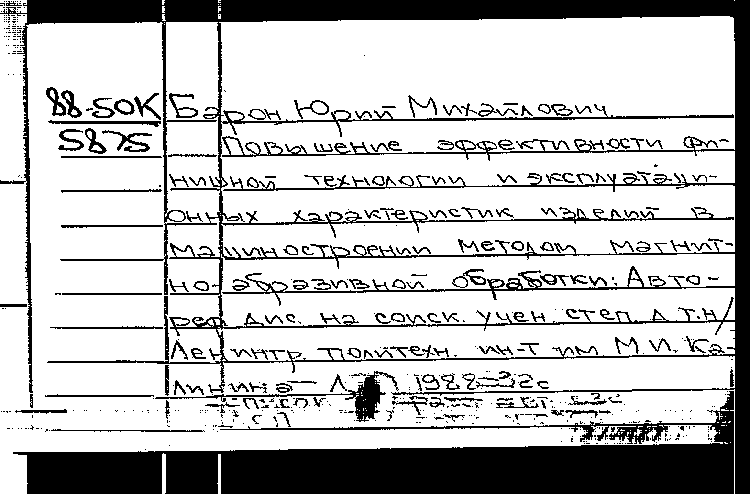 88-50К Барон Юрий Михайлович
5875 Повышение эффективности фи-
нишной технологии и эксплуатаци-
онных характеристик изделий в
машиностроении методом магнит-
но-абразивной обработки: Авто-
реф дис. на соиск. учен степ. д т.н/
Ленингр. политехн. ин-т им М И. Ка-
линина - 1988-32с